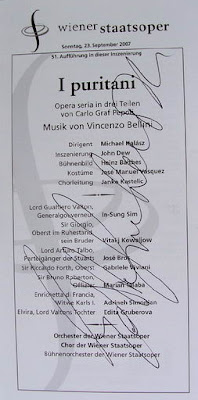 wiener staatsoper
Sonntag, 23. September 2007
51. Aufführung in dieser Inszenierung
I puritani
Opera seria in drei Teilen
von Carlo Graf Pepoli
Musik von Vincenzo Bellini
Dirigent Michael Halász
Inszenierung John Dew
Bühnenbild Heinz Balthes
Kostüme José Manuel Vásquez
Chorleitung Janko Kastelic
Lord Gualtiero Valton,
Generalgouverneur In-Sung Sim
Sir Giorgio,
Oberst im Ruhestand,
sein Bruder Vitalij Kowaljow
Lord Arturo Talbo,
Parteigänger der Stuarts José Bros
Sir Riccardo Forth, Oberst Gabriele Viviani
Sir Bruno Roberton,
Offizier Marian Talaba
Enrichetta di Francia,
Witwe Karls I.
Elvira, Lord Valtons Tochter Edita Gruberova
Orchester der Wiener Staatsoper
Chor der Wiener Staatsoper
Bühnenorchester der Wiener Staatsoper